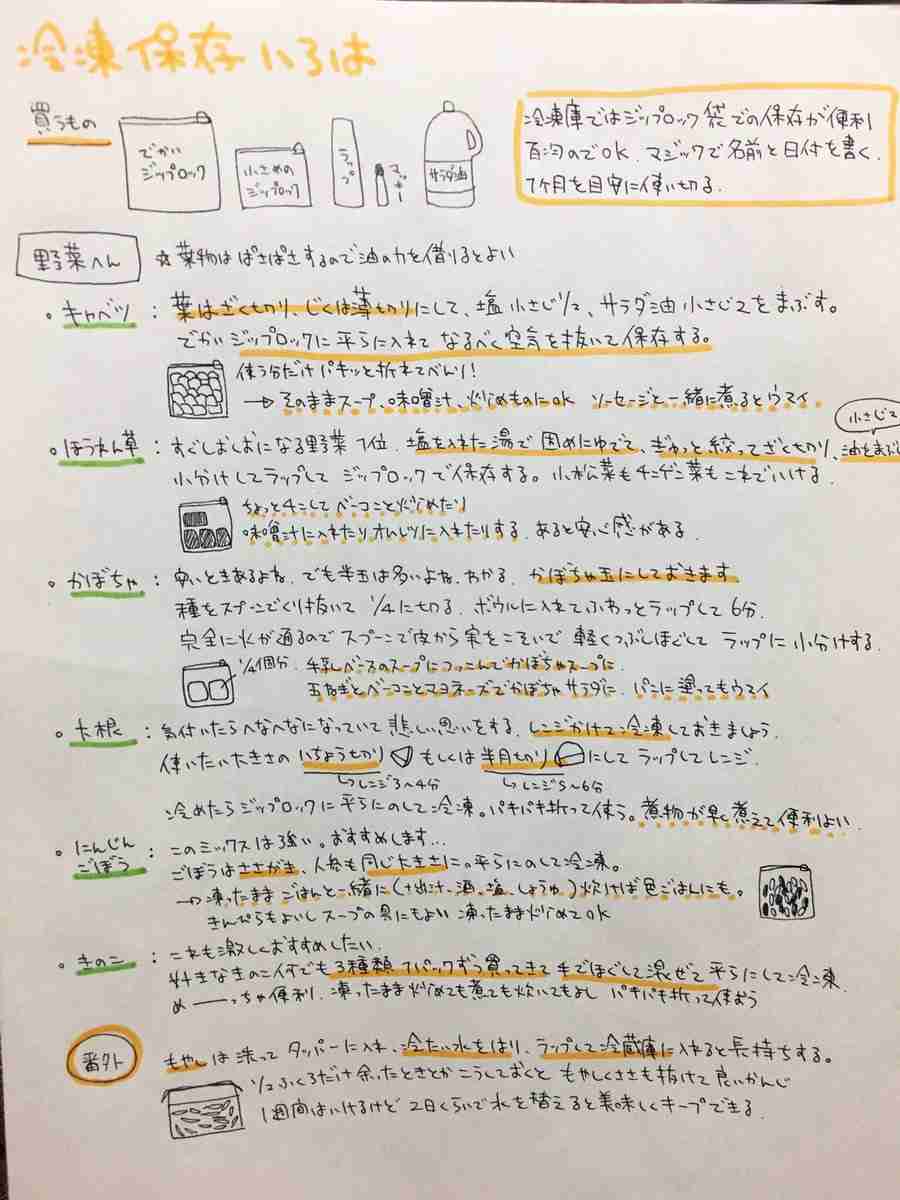 冷凍保存いろは
買うもの
でかい
ジップロック
小さめの
ジップロック
ラップ
マッキー
サラダ油
冷凍庫ではジップロック袋での保存が便利
百均のでOK. マジックで名前と日付を書く.
1ヶ月を目安に使い切る.
野菜へん
☆葉物はぱさぱさするので油の力を借りるとよい
・キャベツ : 葉はざくもり、じくは薄切りにして、塩 小さじ1/2、サラダ油 小さじ2をまぶす。
でかいジップロックに平らに入れて なるべく空気を抜いて保存する。
使う分だけパキッと折れてべんり!
→そのままスープ、味噌汁、炒めものにOK ソーセージと一緒に煮るとウマイ.
・ほうれん草 : すぐしおしおになる野菜1位. 塩を入れた湯で固めにゆでて、ぎゅっと絞ってざくもり、油をまぶし
小さじ2
小分けしてラップして ジップロックで保存する。小松菜もチンゲン菜もこれでいける.
ちょっとチンしてベーコンと炒めたり
味噌汁に入れたりオムレツに入れたりする. あると安心感がある.
・かぼちゃ : 安いときあるよね. でも半玉は多いよね. わかる. かぼちゃ玉にしておきます.
種をスプーンでくり抜いて 1/4に切る. ボウルに入れてふわっとラップして6分.
完全に火が通るのでスプーンで皮から実をこそいで 軽くつぶしほぐして ラップに小分けする.
1/4個分. 牛乳ベースのスープにつっこんでかぼちゃスープに.
玉ねぎとベーコンとマヨネーズでかぼちゃサラダに. パンに塗ってもウマイ
・大根 : 気付いたらへなへなになっていて悲しい思いをする. レンジかけて冷凍しておきましょう.
使いたい大きさの いちょう切り もしくは 半月切り にして ラップしてレンジ.
↳レンジ3~4分
↳レンジ5~6分
冷めたらジップロックに平らにのして冷凍。パキパキ折って使う。煮物が早く煮えて便利よい.
・にんじん
ごぼう : このミックスは強い。おすすめします...
ごぼうはささがき、人参も同じ大きさに。平らにのして冷凍。
→凍ったまま ごはんと一緒に(出汁、酒、塩、しょうゆ)炊けば色ごはんにも。
きんぴらもよいしスープの具にもよい 凍ったまま炒めてOK
・きのこ : これも激しくおすすめしたい.
好きなきのこ何でも3種類 1パックずつ買ってきて 手でほぐして混ぜて平らにして冷凍.
め——っちゃ便利. 凍ったまま炒めても煮ても炊いてもよし パキパキ折って使おう
番外
もやしは洗って タッパーに入れ、冷たい水をはり、ラップして冷蔵庫に入れると長持ちする。
1/2ふくろだけ余ったときとかこうしておくと もやしくささも抜けて良いかんじ
1週間はいけるけど 2日くらいで水を替えると美味しくキープできる.